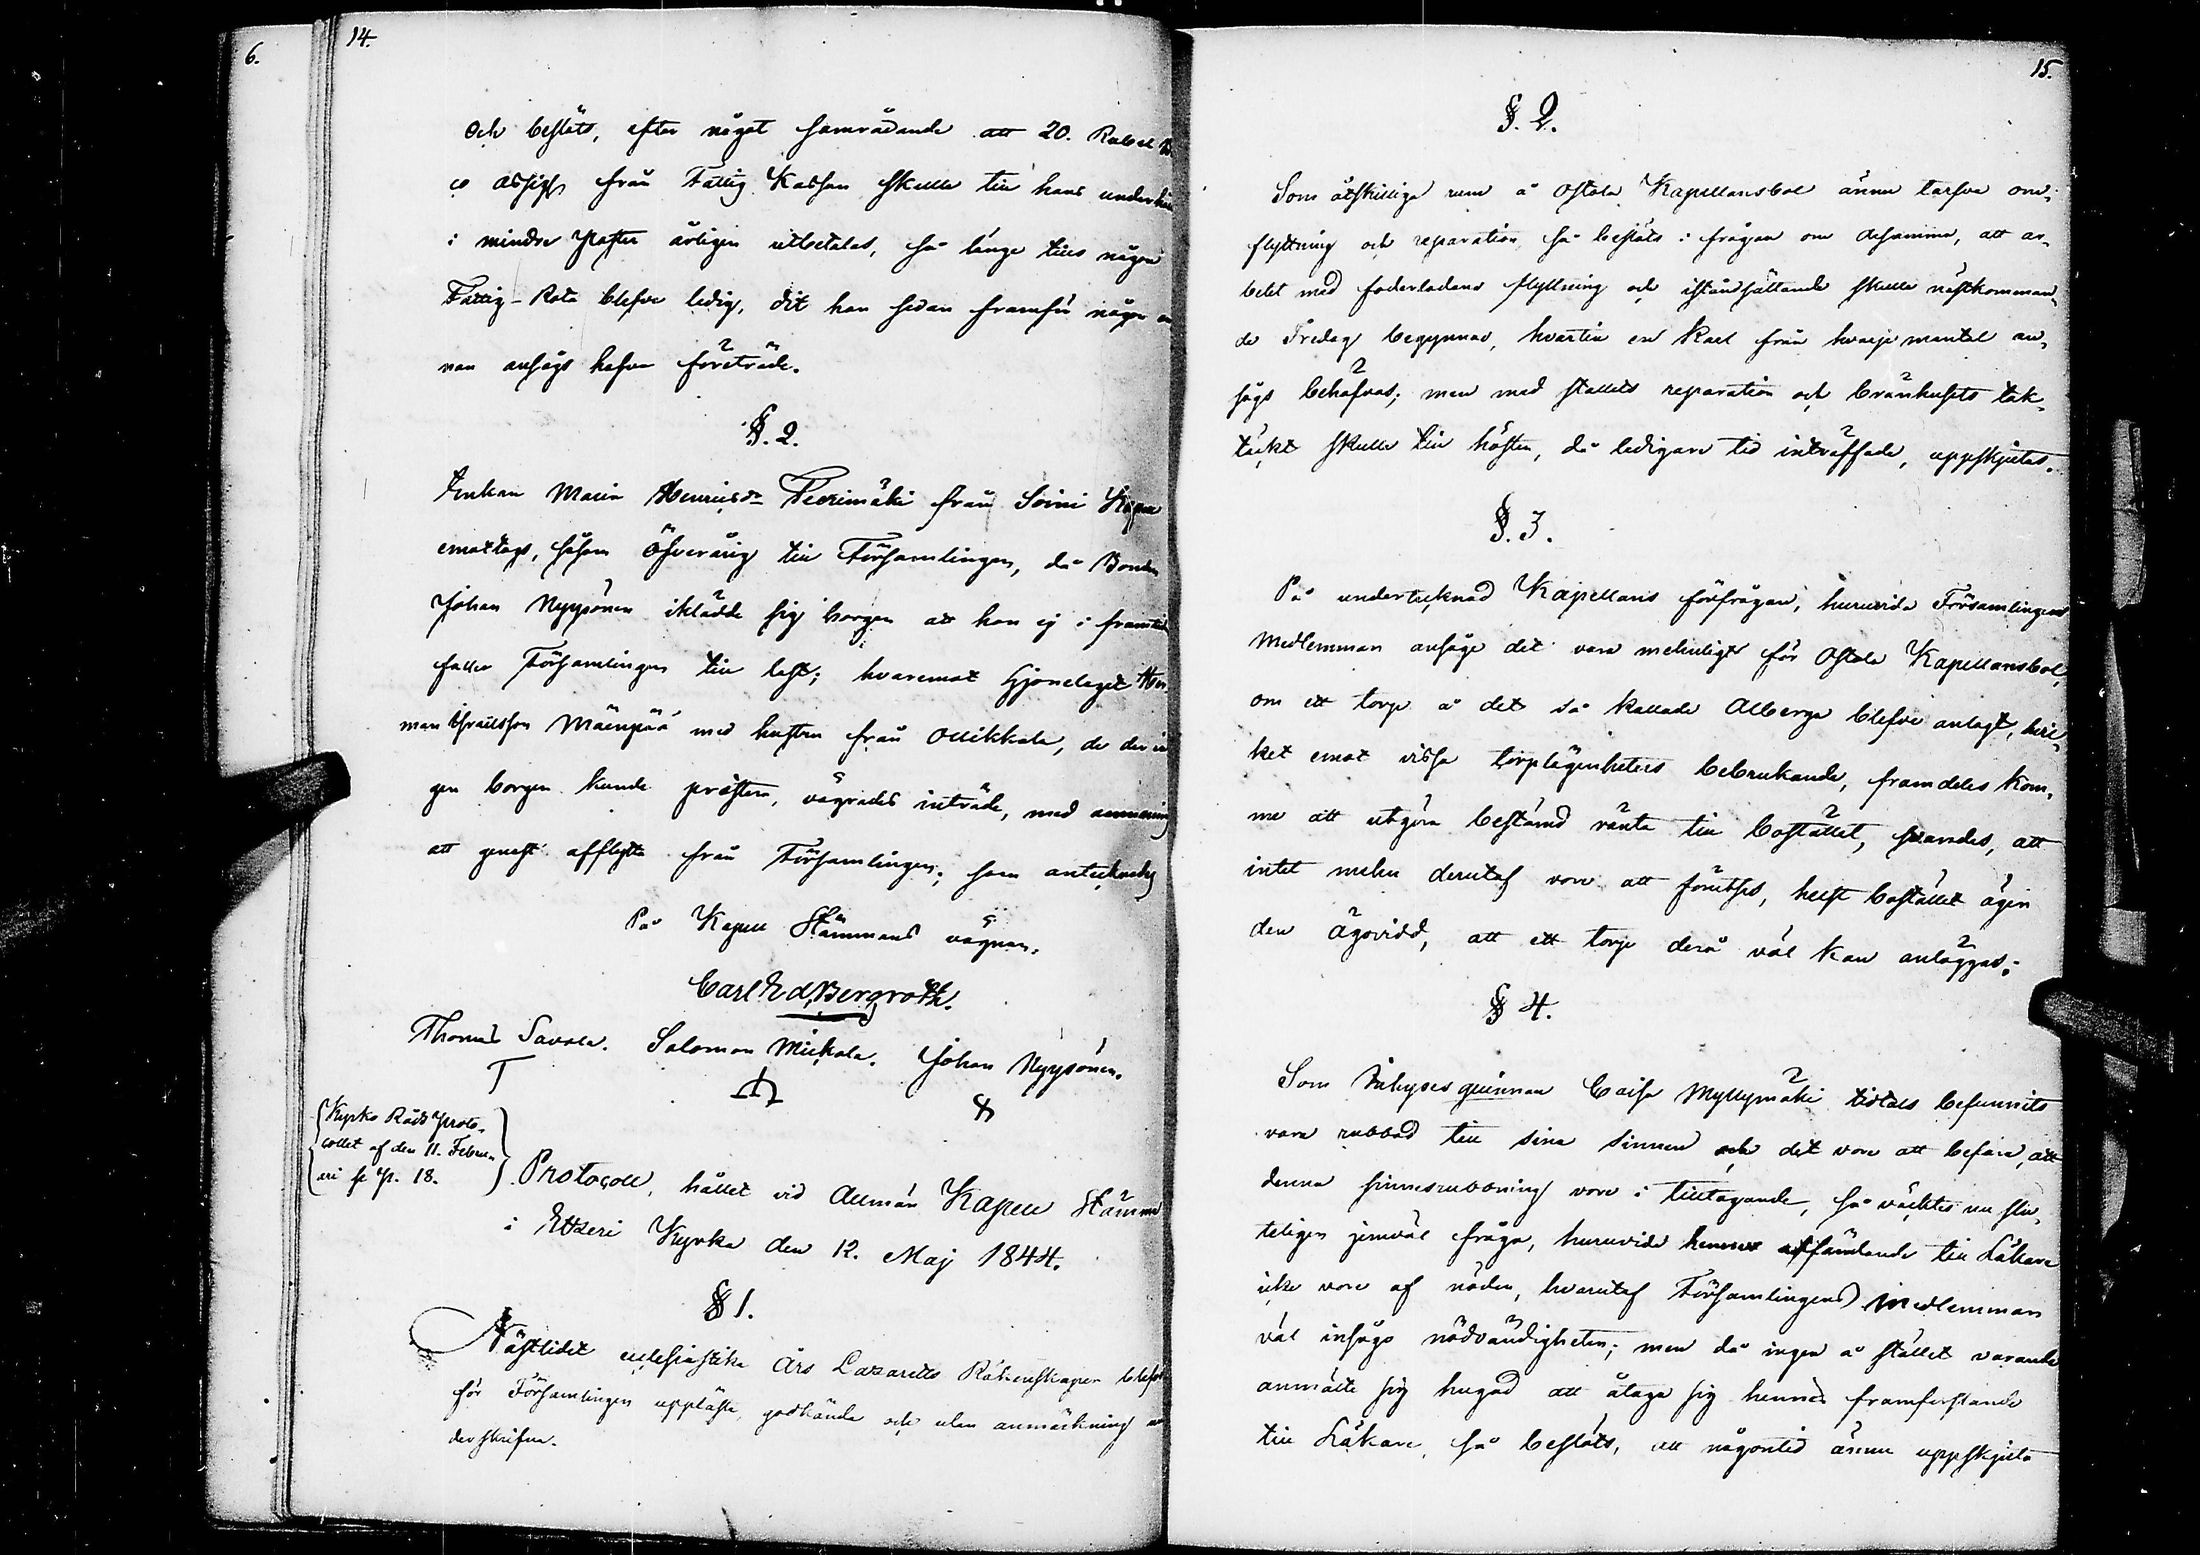 6.
14.
och beslöts, efter något samrådande att 20. Rubel
co assign från Fattig Kassan skulle till hans underhåll
i mindre poster årligen utbetalas, så länge tills någon
Fattig-Rota blefve ledig, dit han sedan framför någon an
nan ansågs hafva företräde.
§. 2.
Enkan Maria Henricsdr Peurimäki från Soini Kapell
emottogs, såsom öfverårig till Församlingen, då Bonden
Johan Nyyssönen iklädde sig borgen att hon ej i framtiden
faller Församlingen till last; hvaremot Hjonelaget Her
man Israelsson Mäenpää med hustru från Ollikkala, de der in
gen borgen kunde prestera, vägrades inträde, med anmaning
att genast afflytta från Församlingen; som antecknades
På Kapell Stämmans vägnar.
Carl Ed. Bergroth.
Thomas Savola. Salomon Mickola. Johan Nyyssönen.
T
Kyrko Råds Proto-
collet af den 11. Febru-
ari se p. 18.
Protocoll, hållet vid allmän Kapell Stämma
i Etseri Kyrka den 12. Maj 1844.
§ 1.
Nästlidet ecclesiastika Års Lazaretts Räkenskaper blefvo
för Församlingen uppläste, godkände och utan anmärkning un
derskrifne.
15.
§. 2.
Som åtskilliga rum å Ostola Kapellansbol ännu tarfva om-
flyttning och reparation, så beslöts i frågan om desamma, att ar-
betet med foderladans flyttning och iståndsättande skulle nästkomman-
de Fredag begynnas, hvartill en karl från hvarje mantal an-
sågs behöfvas; men med stallets reparation och brännhusets tak-
täckt skulle till hösten, då ledigare tid inträffade, uppskjutas.
§. 3.
På undertecknad Kapellans förfrågan, huruvida Församlingens
Medlemmar ansåge det vara menligt för Ostola Kapellansbol,
om ett torp å det så kallade Alberga blefve anlagt, hvil-
ket emot vissa torplägenheters bebrukande, framdeles kom-
me att utgöra bestämd ränta till bostället, svarades, att
intet men derutaf vore att förutses, helst bostället äger
den ägovidd, att ett torp derå väl kan anläggas.
§ 4.
Som Inhyses qvinnan Caisa Myllymäki tidtals befunnits
vara rubbad till sina sinnen och det vore att befara, att
denna sinnesrubbning vore i tilltagande, så väcktes nu slu-
teligen jemväl fråga, huruvida hennes afsändande till Läkare
icke vore af nöden, hvarutaf Församlingens Medlemmar
väl insågo nödvändigheten; men då ingen å stället varande
anmälte sig hugad att åtaga sig hennes framforslande
till Läkare, så beslöts, att någontid ännu uppskjuta